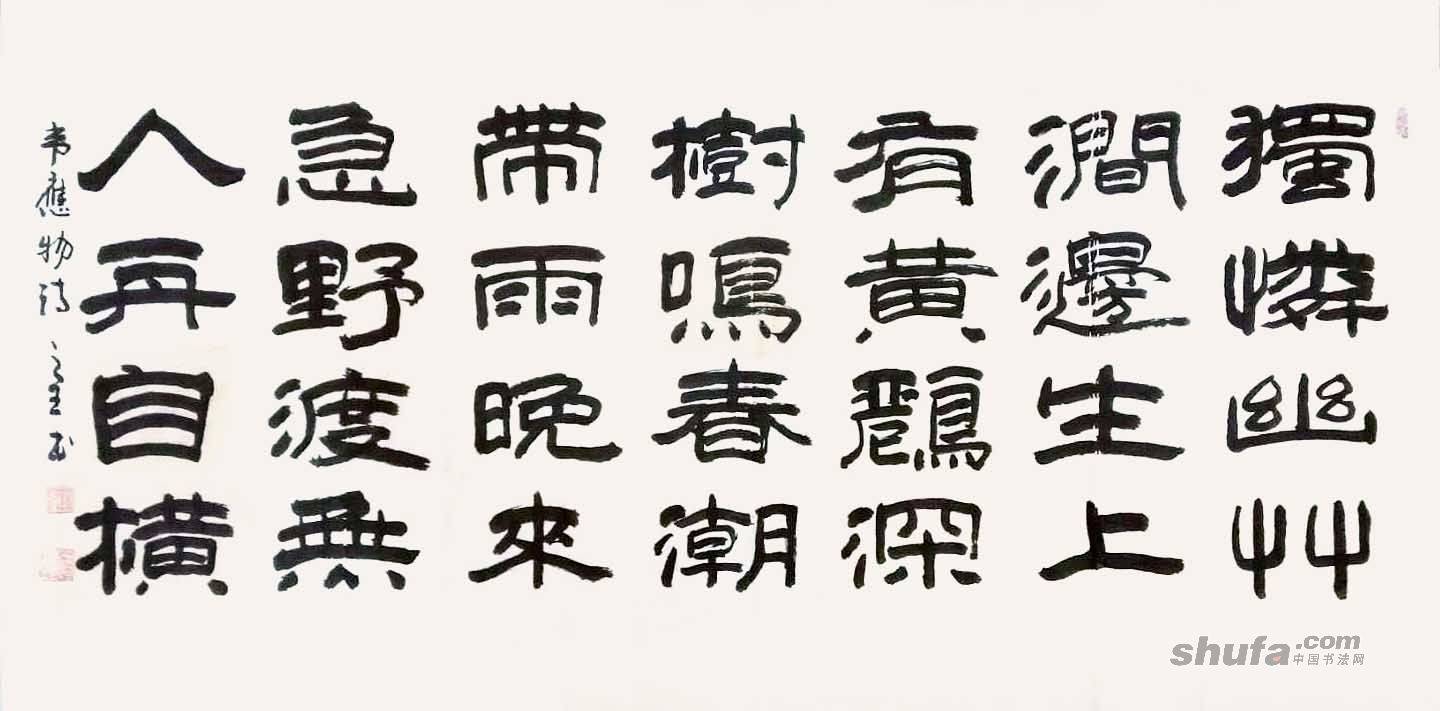 獨憐幽艸
澗邊生上
有黃鸝深
樹鳴春潮
帶雨晚來
急野渡無
人舟自橫
韦應物诗
shufa.com
中国书法网